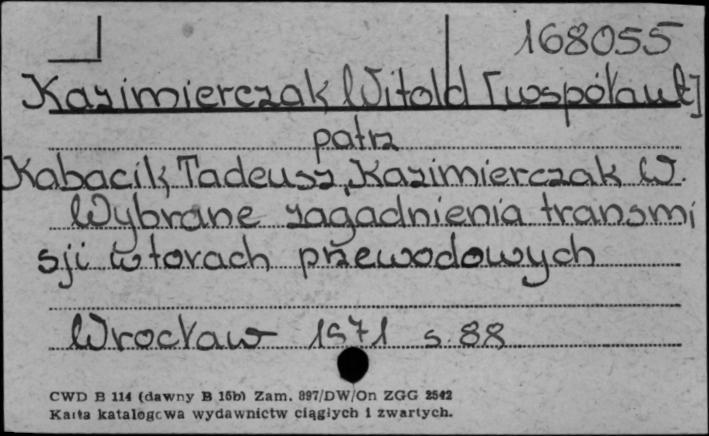 168055
Kazimierczak Witold [współaut]
patrz
Kabacik Tadeusz, Kazimierczak W.
Wybrane zagadnienia transmi
sji w torach przewodowych
Wrocław 1971 s. 88
CWD B 114 (dawny B 15b) Zam. 897/DW/On ZGG 2542
Karta katalogowa wydawnictw ciągłych i zwartych.